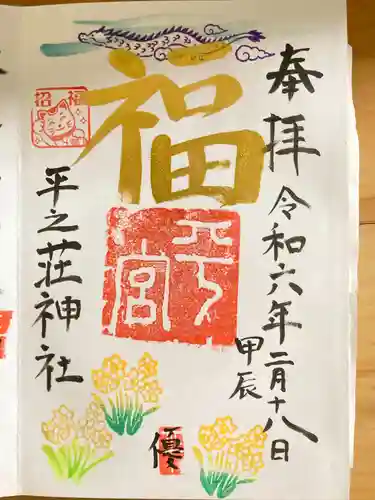 奉拝
令和六年二月十八日
甲辰
福
招福
平之荘神社
優